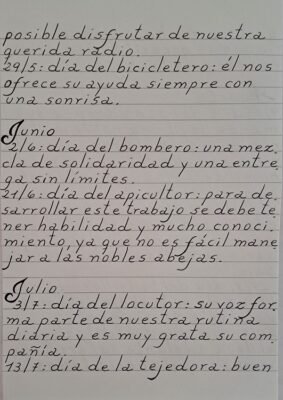 posible disfrutar de nuestra
querida radio.
29/5: día del bicicletero: él nos
ofrece su ayuda siempre con
una sonrisa.
Junio
2/6: día del bombero: una mez
cla de solidaridad y una entre
ga sin límites.
21/6: día del apicultor: para de
sarrollar este trabajo se debe te
ner habilidad y mucho conoci
miento, ya que no es fácil mane
jar a las nobles abejas.
Julio
3/7: día del locutor: su voz for
ma parte de nuestra rutina
diaria y es muy grata su com
pañía.
13/7: día de la tejedora: buen